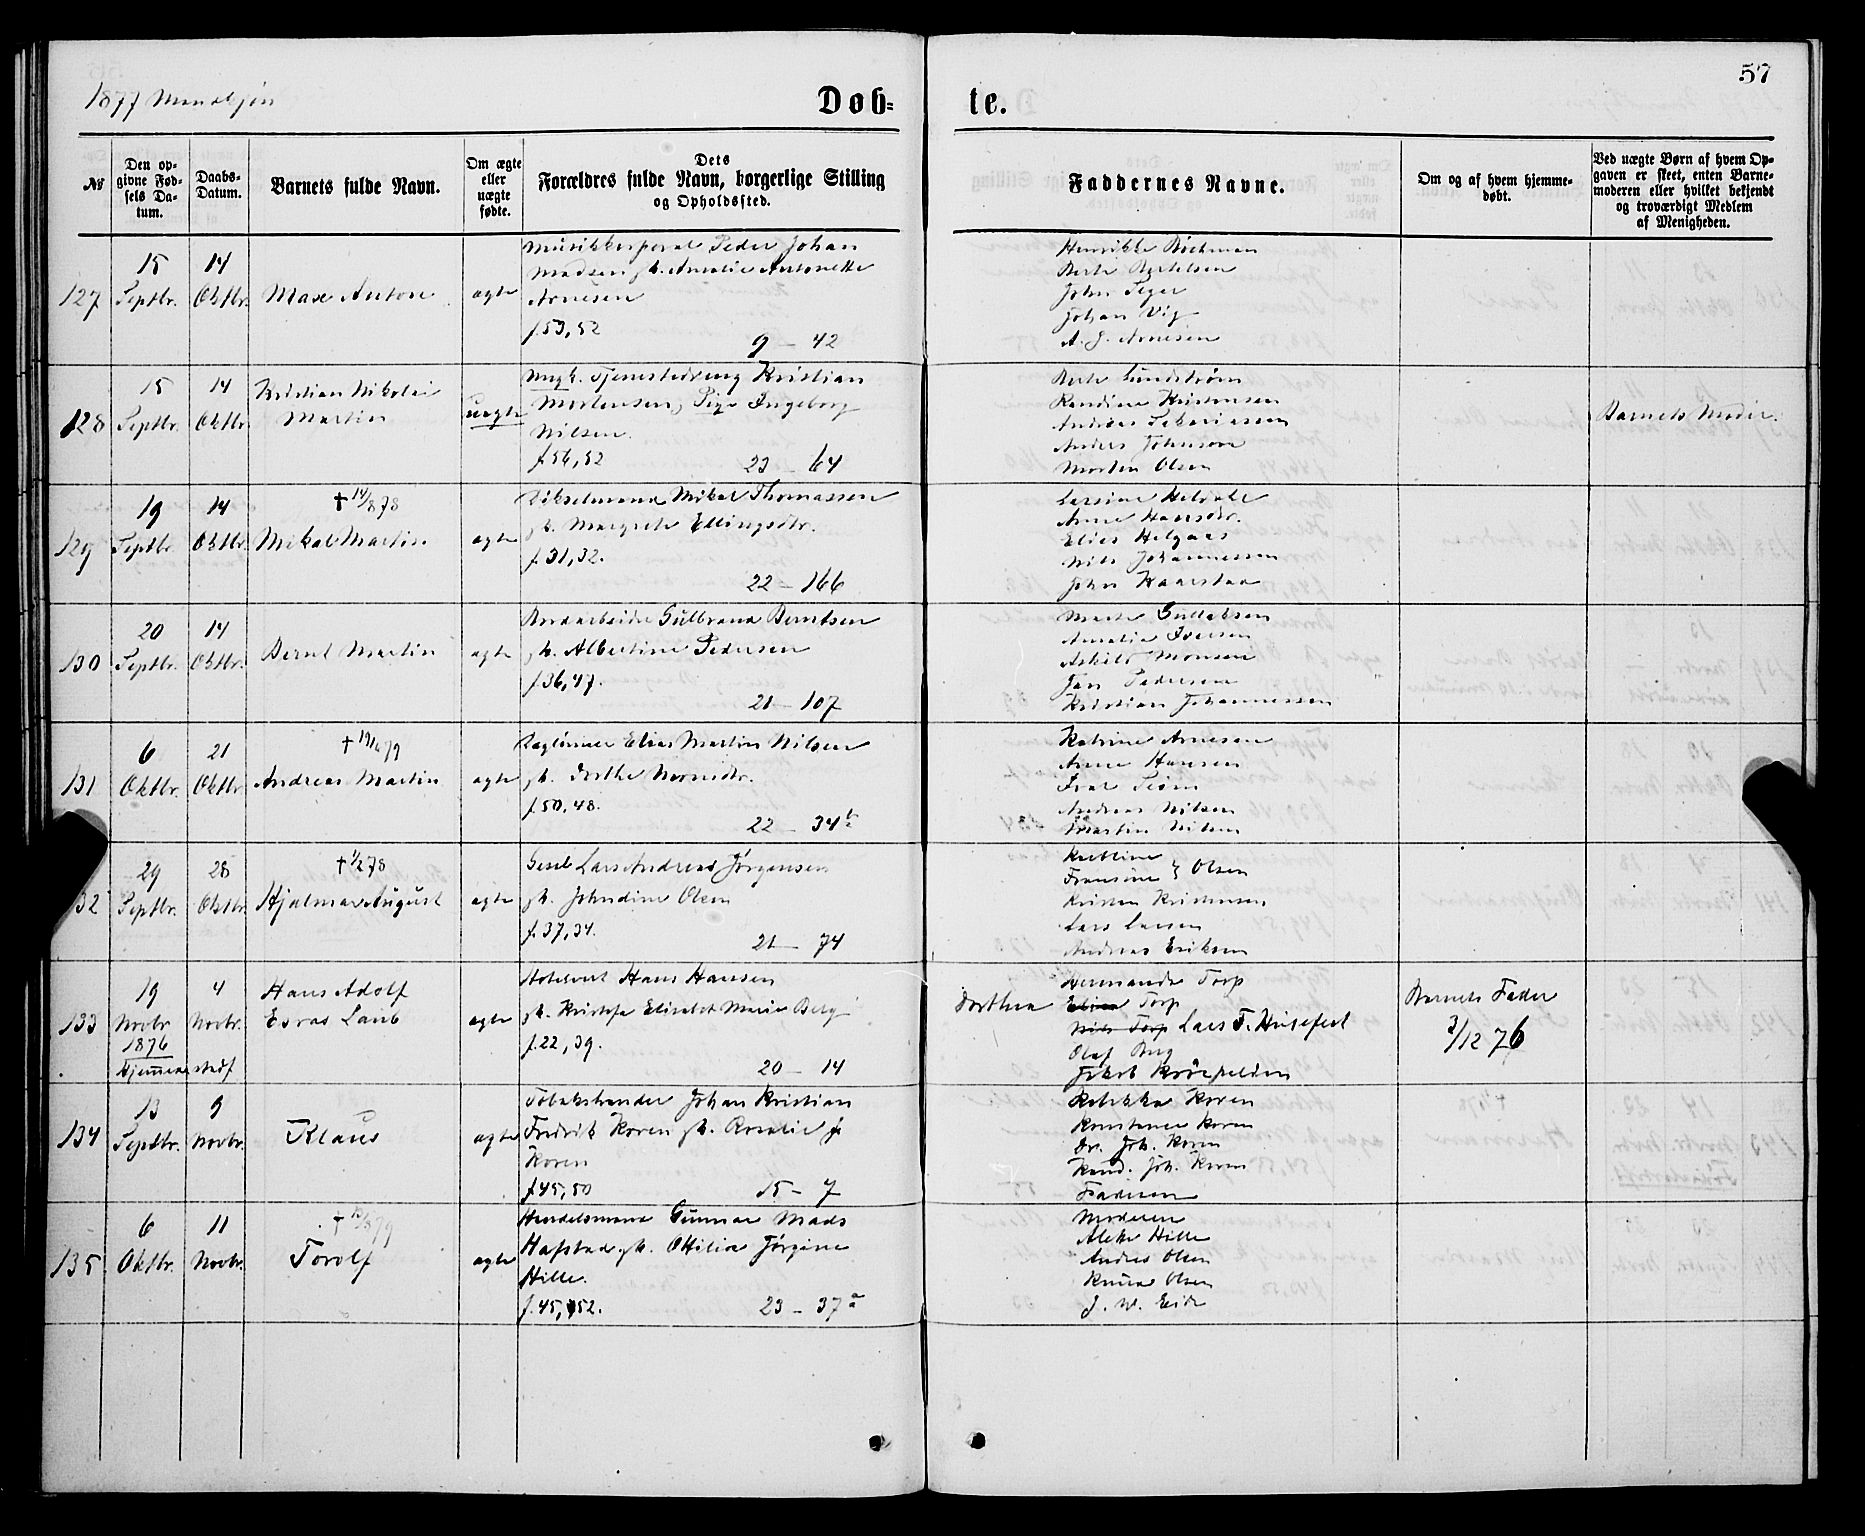 1877 Mandkjøn
57
Døb-
te.
№
Den op-
givne Fød-
sels Da-
tum.
Daabs-
Datum.
Barnets fulde Navn.
Om ægte
eller
uægte
fødte.
Dets
Forældres fulde Navn, borgerlige Stilling
og Opholdssted.
Faddernes Navne.
Om og af hvem hjemme-
døbt.
Ved uægte Børn af hvem Op-
gaven er skeet, enten Barne-
moderen eller hvilket bekjendt
og troværdigt Medlem
af Menigheden.
127
15
Septbr.
14
Oktbr.
Max Anton
ægte
Musikkorporal Peder Johan
Madsen gk. Amalie Antonette
Arnesen
f. 53, 52
9 – 42
Henrikke
Berte Bertelsen
John
Johan Vig
A. J. Arnesen
128
15
Septbr.
14
Oktbr.
Kristian Nikolai
Martin
uægte
Ungk. Tjenestedreng Kristian
Mortensen, Pige Ingeborg
Nilsen.
f. 56, 52
23 – 64
Berte Lundstrøm
Randine Kristensen
Andreas Sakariassen
Anders Johnsen
Morten Olsen
Barnets Moder.
129
19
Septbr.
14
Oktbr.
† 14/8 78
Mikal Martin
ægte
Mikal Thomassen
gk. Margrete Ellingsdtr.
f. 31, 32.
22 – 166
Anne Hansdtr.
Elias Helgaas
Nils Johannessen
John Haarstad
130
20
Septbr.
14
Oktbr.
Bernt Martin
ægte
Gulbrand Berntsen
gk. Albertine Pedersen
f. 36, 47.
21 – 107
Marte Gullaksen
Amalie Iversen
Monsen
Jan Pedersen
Kristian Johannessen
131
6
Oktbr.
21
Oktbr.
Andreas Martin
ægte
Elias Martin Nilsen
gk. Dorthe
f. 50, 48.
22 – 34 b
Katrine Arnesen
Anne Hansen
Andreas Nilsen
Martin Nilsen
132
29
Septbr.
28
Oktbr.
Hjalmar August
ægte
Lars Andreas Jørgensen
gk. Johndine Olsen
f. 37, 34.
21 – 74
Fransine } Olsen
Kristen Kristensen
Lars Larsen
Andreas Eriksen
133
19
Novbr.
1876
Hjemmenstadf
4
Novbr.
Hans Adolf
Esras Laub
ægte
Hotelvert Hans Hansen
gk. Elisabet Marie Berg
f. 22, 39.
20 – 14
Hermande Torp
Dorthea Torp
Nils Torp Lars F. Husefest
Olaf Berg
Jakob
Barnets Fader
3/12 76
134
13
Septbr.
9
Novbr.
Klaus
ægte
Tobakshandler Johan Kristian
Fredrik Koren gk. Rosalie f.
Koren
f. 45, 50
15 – 7
Rebekka Koren
Konstance Koren
Dr. Joh. Koren
Kand. Joh. Koren
Faderen
135
6
Oktbr.
11
Novbr.
Torolf
ægte
Handelsmand Gunnar Mads
Hafstad gk. Ottilia Jørgine
Hille.
f. 45, 52.
23 – 37 a
Moderen
Alette Hille
Andres Olsen
Knud Olsen
J. W. Eide